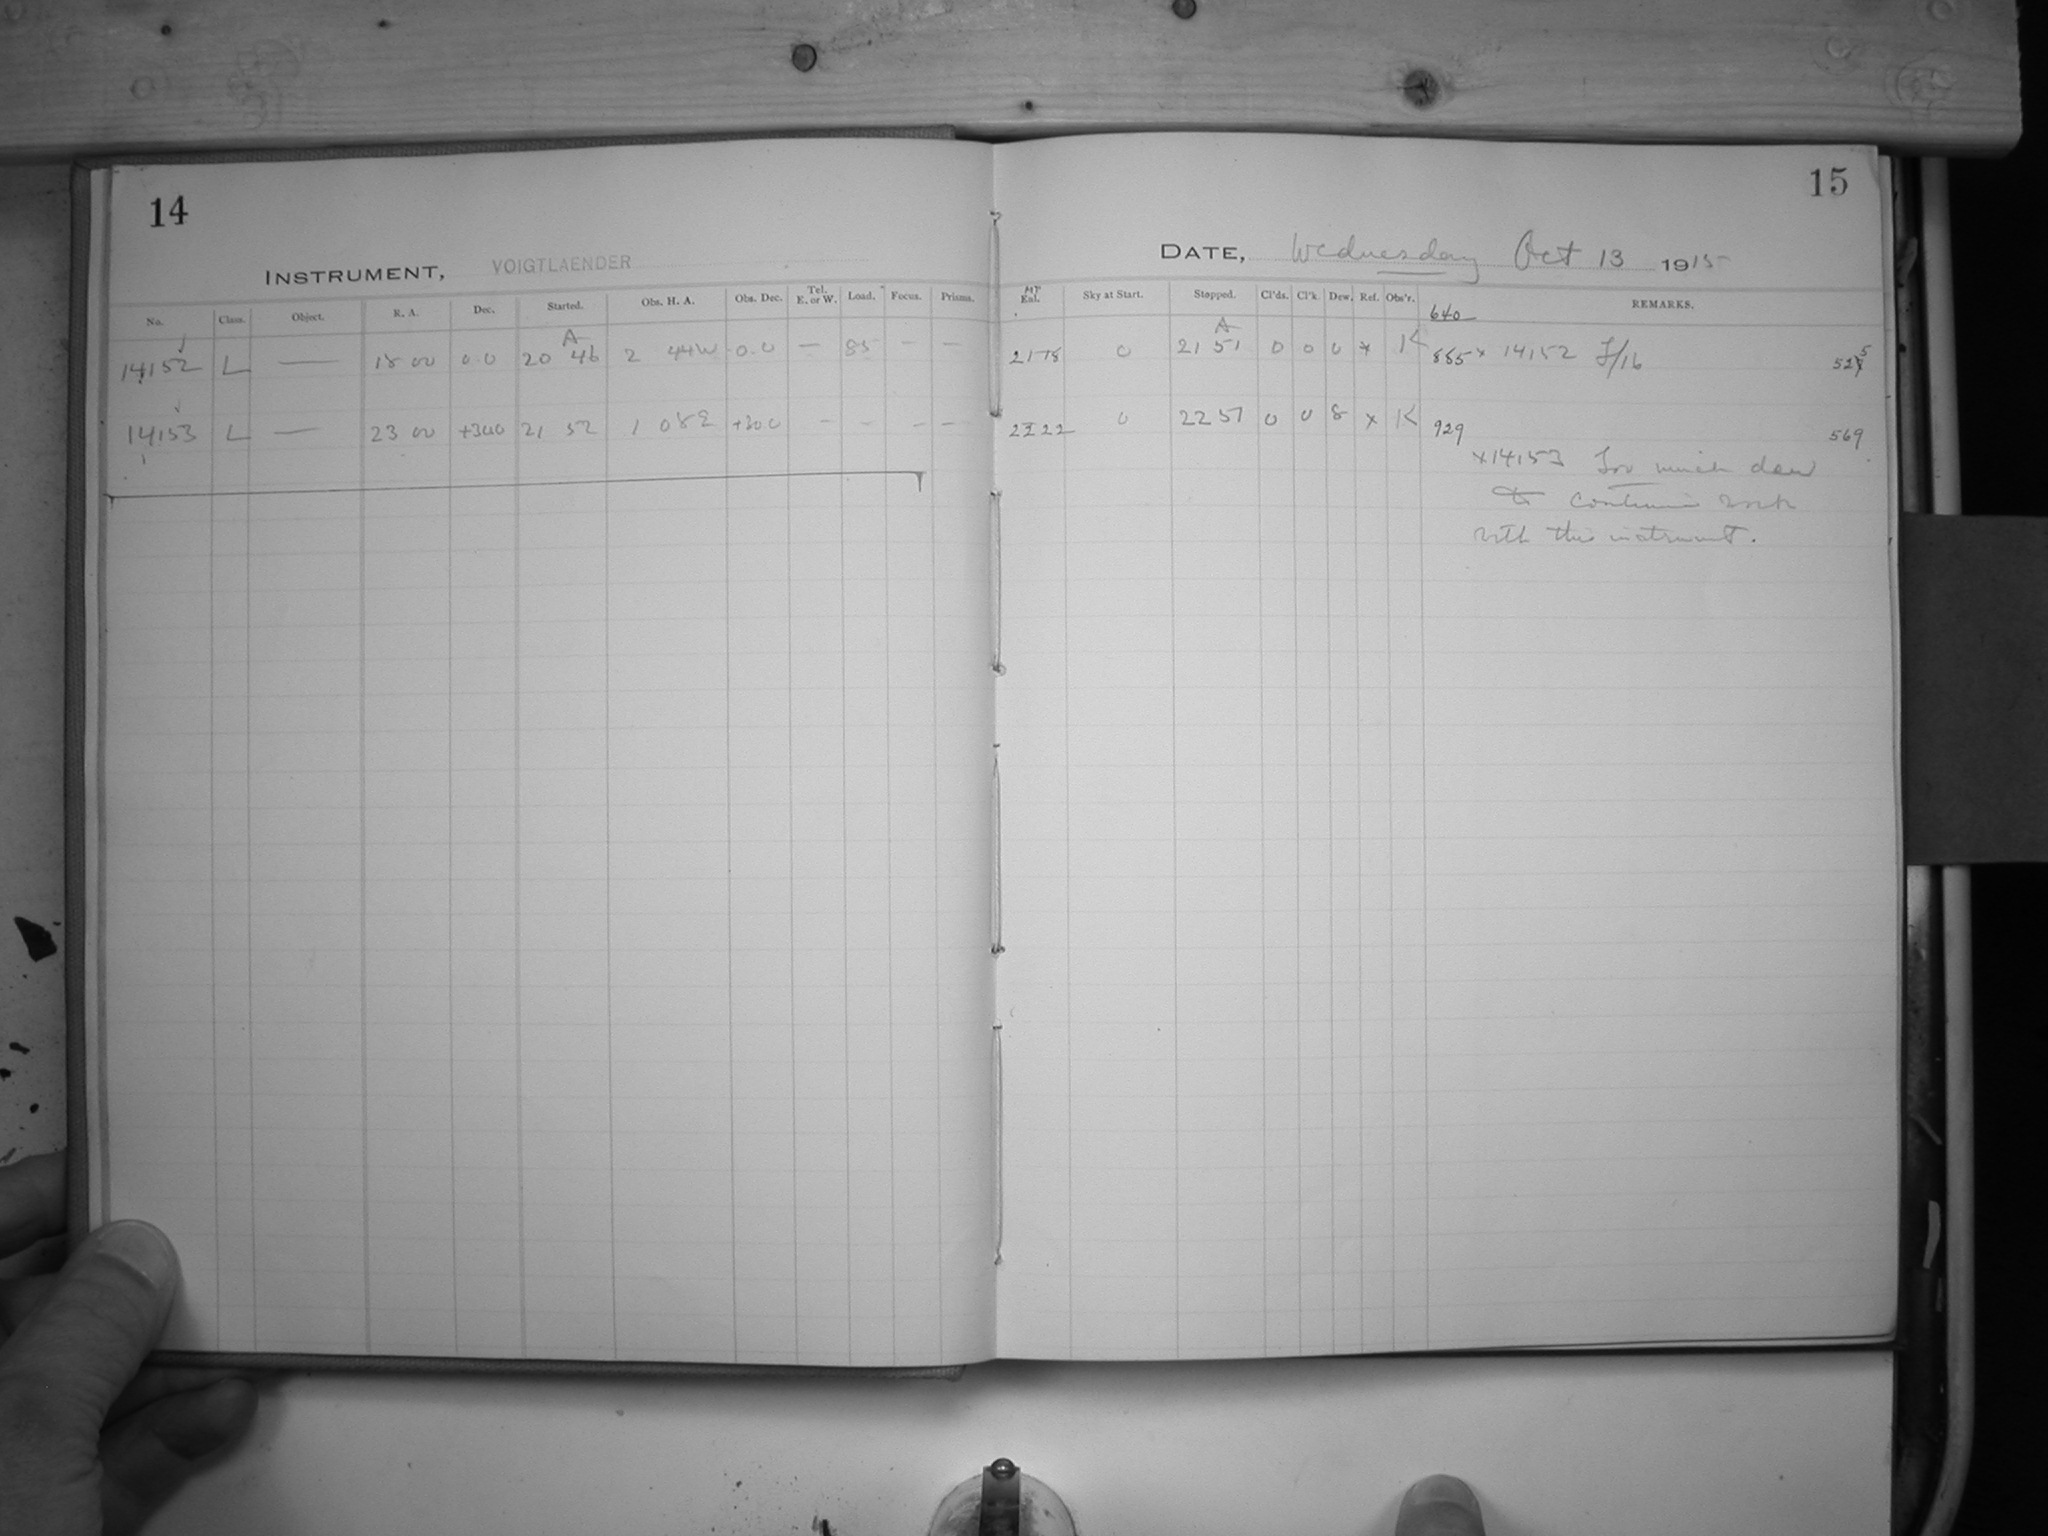 14
15
INSTRUMENT, VOIGTLAENDER
DATE, Wednesday Oct 13 1915
No. Class. Object. R. A. Dec. Started. Obs. H. A. Obs. Dec. Tel. E. or W. Load. Focus. Prisms.
Sky at Start. Stopped. Cl'ds. Cl'k. Dew. Ref. Obs'r. REMARKS.
640
14152 L — 18 00 0.0 20 A 46 2 44W 0.0 — 85 — — 21 18 0 A 21 51 0 0 0 x K 885 x 14152 F/16
14153 L — 23 00 +30.0 21 52 1 08E +30 0 — — — — 0 22 57 0 0 8 x K 929 569
x14153 Too much dew
to continue work
with this instrument.